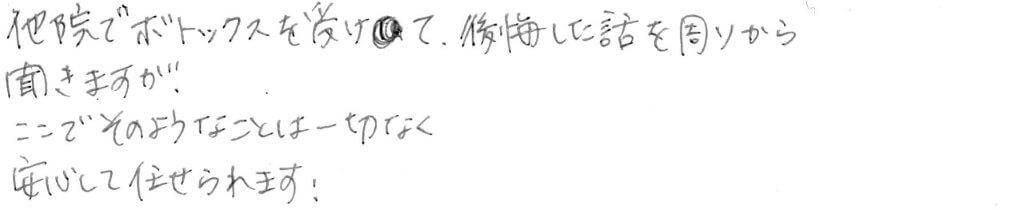 他院でボトックスを受けて、後悔した話を周りから
聞きますが、
ここでそのようなことは一切なく
安心して任せられます!